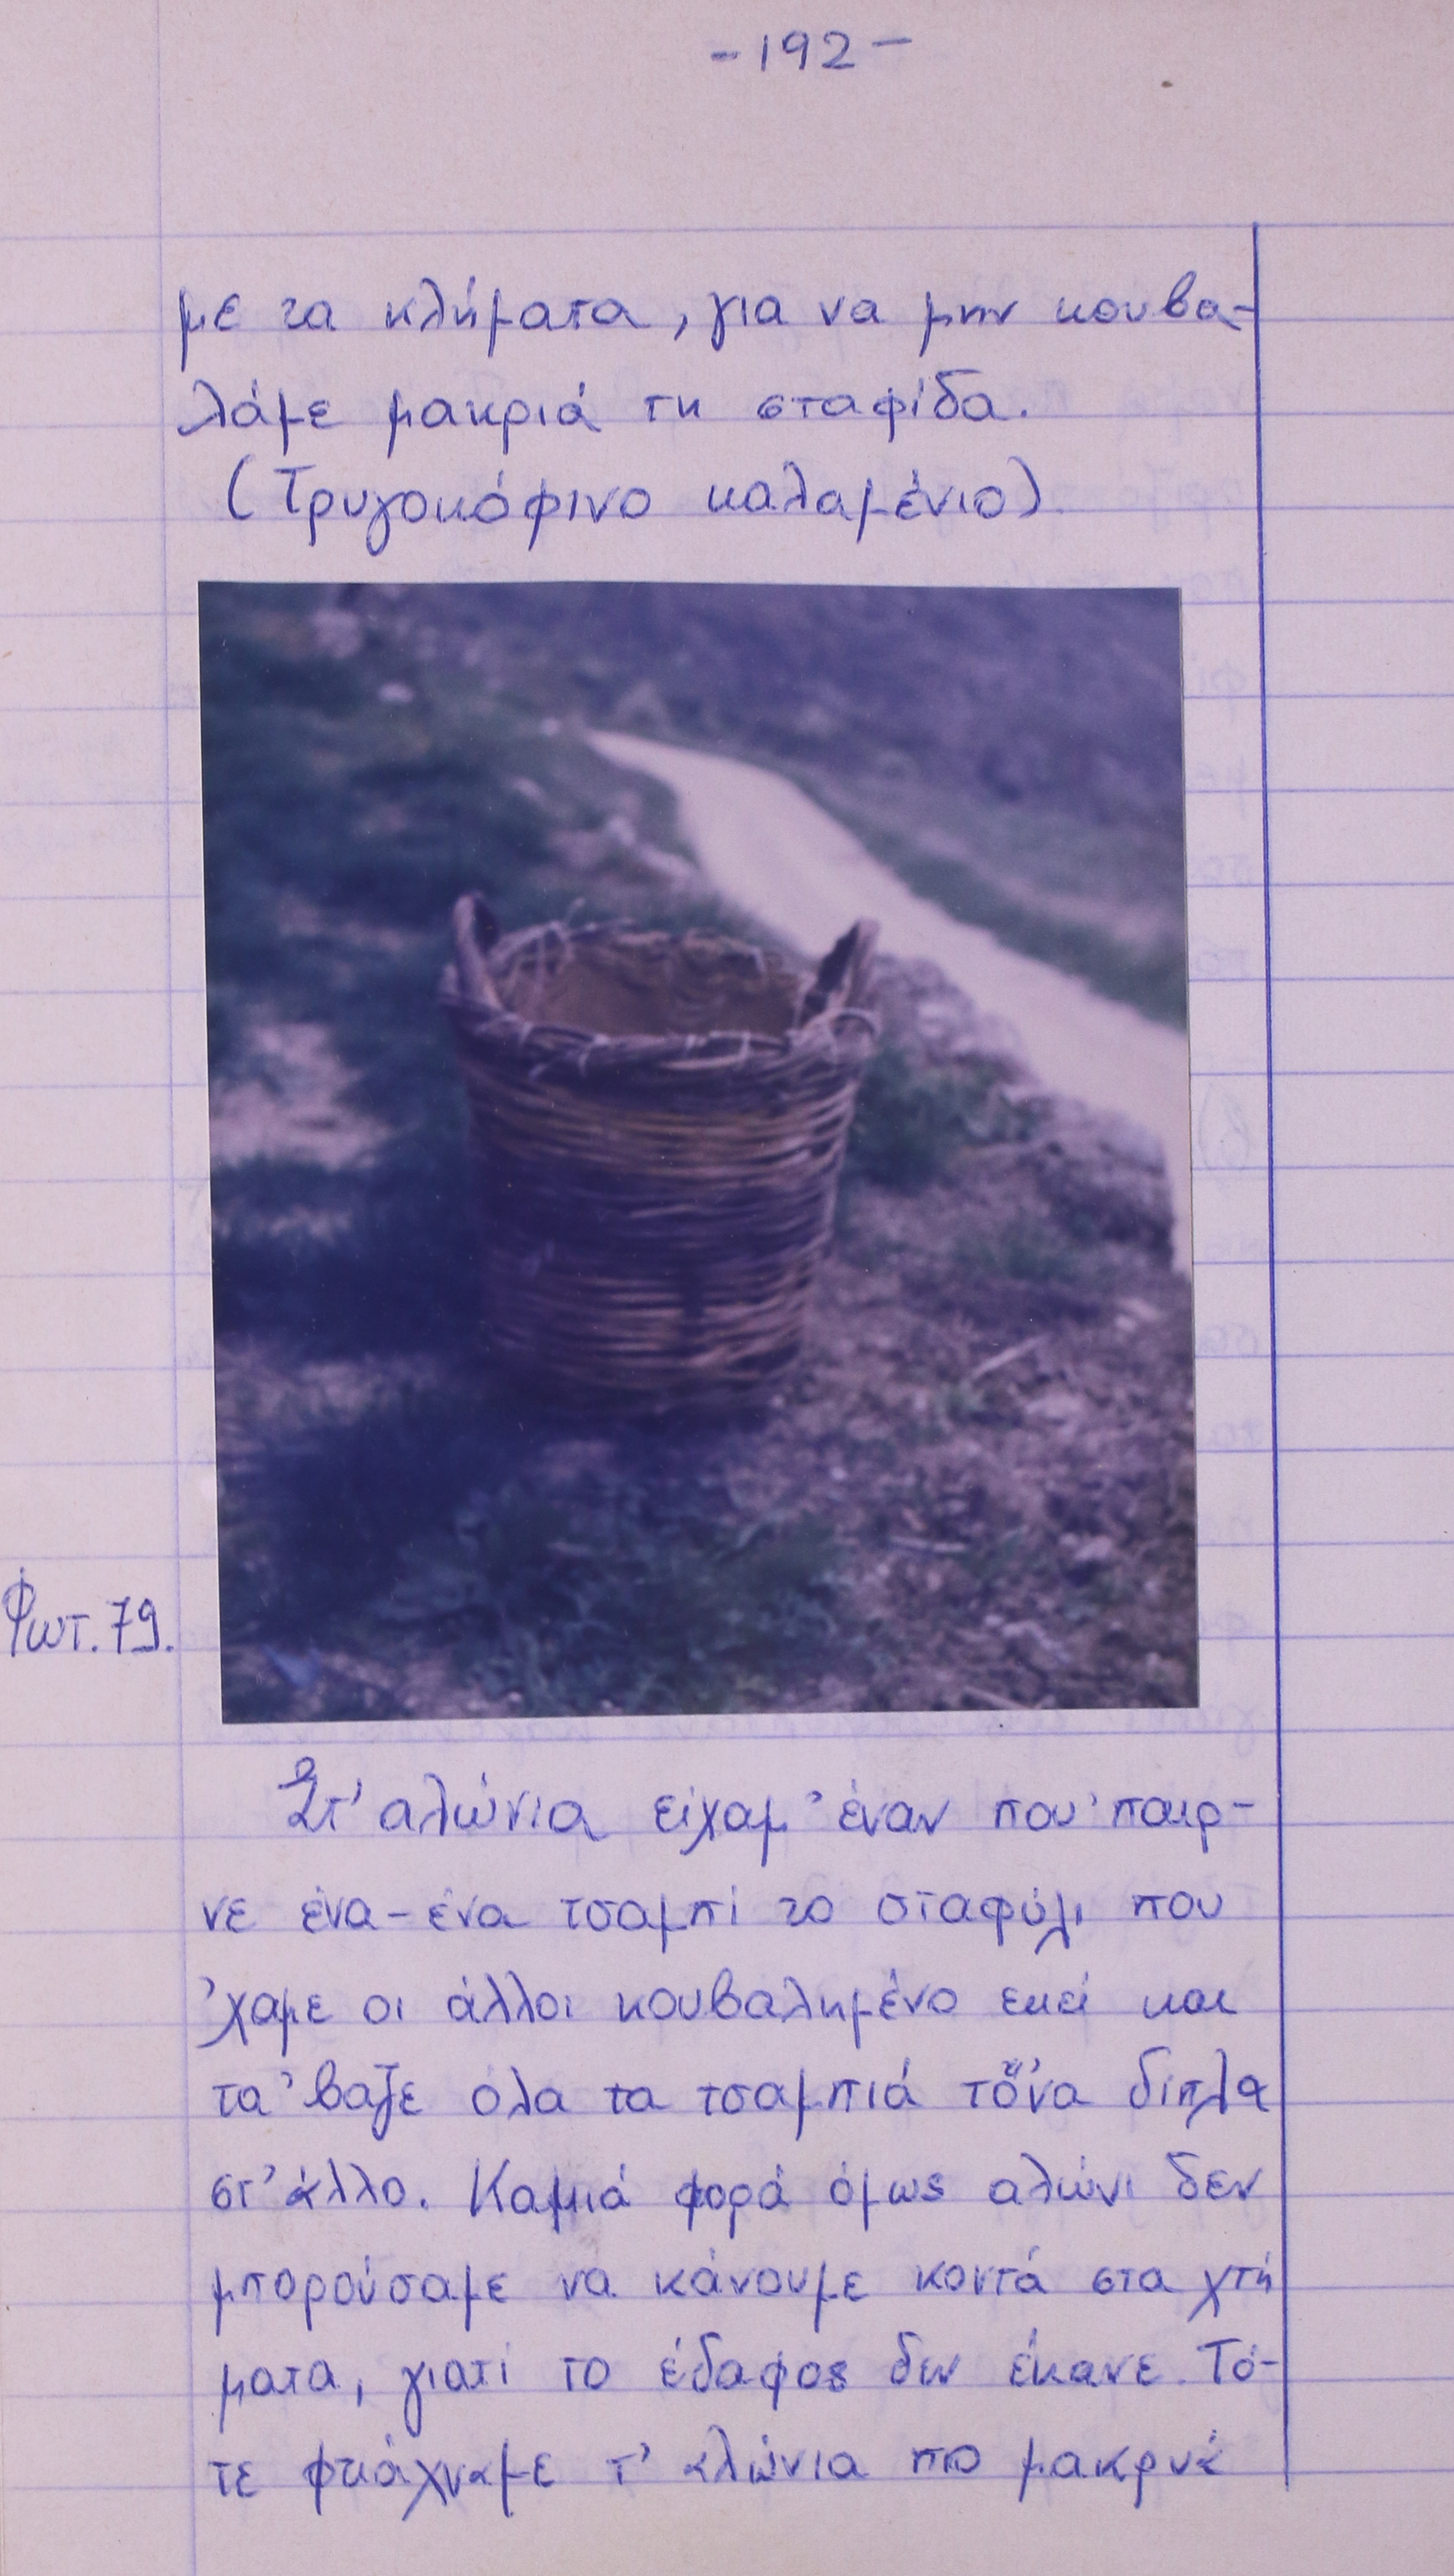 -192-
με τα κλήματα, για να μην κουβα-
λάμε μακριά τη σταφίδα.
(Τρυγοκόφινο καλαμένιο)
Φωτ. 79.
Στ' αλώνια είχαμ' έναν που 'παιρ-
νε ένα-ένα τσαμπί το σταφύλι που
'χαμε οι άλλοι κουβαλημένο εκεί και
τα 'βαζε όλα τα τσαμπιά τό'να δίπλα
στ' άλλο. Καμμιά φορά όμως αλώνι δεν
μπορούσαμε να κάνουμε κοντά στα χτή
ματα, γιατί το έδαφος δεν έκανε. Τό-
τε φτιάχναμε τ' αλώνια πιο μακρυά